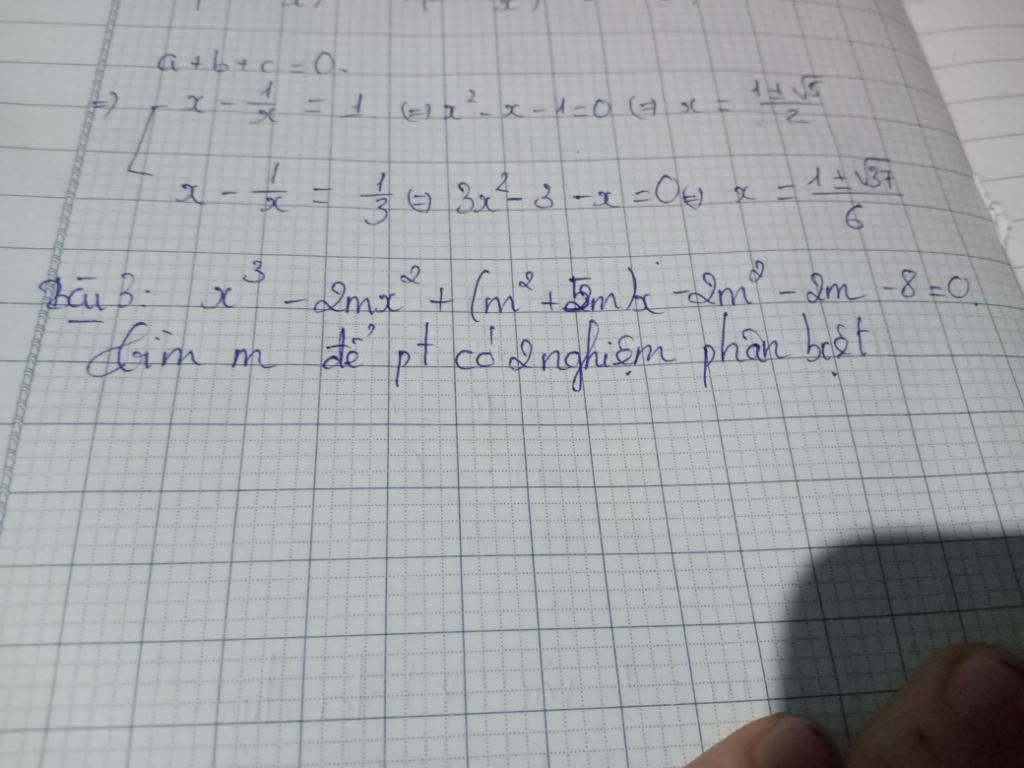 a + b + c = 0.
=> [ x - 1/x = 1 <=> x² - x - 1 = 0 <=> x = (1 ± √5)/2
x - 1/x = 1/3 <=> 3x² - 3 - x = 0 <=> x = (1 ± √37)/6
Bài 3: x³ - 2mx² + (m² + 5m)x - 2m² - 2m - 8 = 0.
Tìm m để pt có 2 nghiệm phân biệt